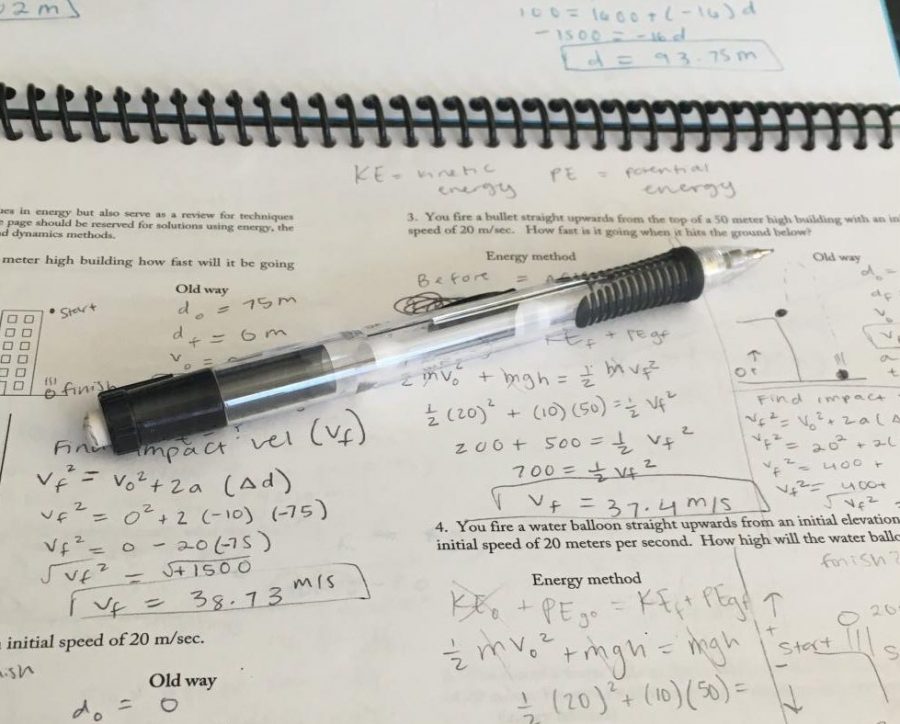 02 m)
100 = 1600 + (-16) d
-1500 = -16 d
d = 93.75 m
KE = kinetic energy
PE = potential energy
in energy but also serve as a review for techniques
page should be reserved for solutions using energy, the
dynamics methods.
meter high building how fast will it be going
Old way
• Start
finish
d₀ = 75 m
d_f = 0 m
v₀ =
Find impact vel (Vf)
Vf² = V₀² + 2a (Δd)
Vf² = 0² + 2 (-10) (-75)
Vf² = 0 - 20(-75)
√Vf² = √+1500
Vf = 38.73 m/s
initial speed of 20 m/sec.
Old way
d₀ = 0
3. You fire a bullet straight upwards from the top of a 50 meter high building with an in
speed of 20 m/sec. How fast is it going when it hits the ground below?
Energy method
Before =
+ PEgf
mv₀² + mgh = ½ mvf²
½ (20)² + (10)(50) = ½ Vf²
200 + 500 = ½ Vf²
700 = ½ Vf²
Vf = 37.4 m/s
Old way
d₀ =
df
V₀
a
t
0+
Find impact
Vf² = V₀² + 2a (Δ
Vf² = 20² + 2(
Vf² = 400 +
Vf² = 400+
√Vf²
4. You fire a water balloon straight upwards from an initial elevation
initial speed of 20 meters per second. How high will the water ballo
Energy method
KE₀ + PEg₀ = KEf + PEgf
½ mv₀² + mgh = mgh
½ (20)² + (10)(50) =
finish?
20
+
Start
-